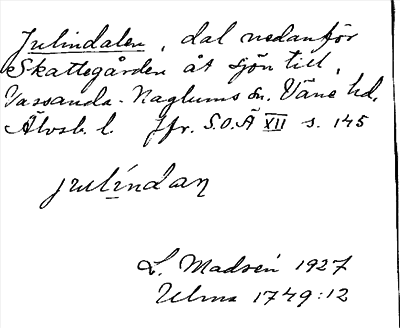 Julindalen, dal nedanför
Skattegården åt sjön till,
Vassanda-Naglums sn. Väne hd,
Älvsb. l. Jfr. S.O.Ä XII s. 145
julíndan
L. Madsén 1927
Ulma 1749:12